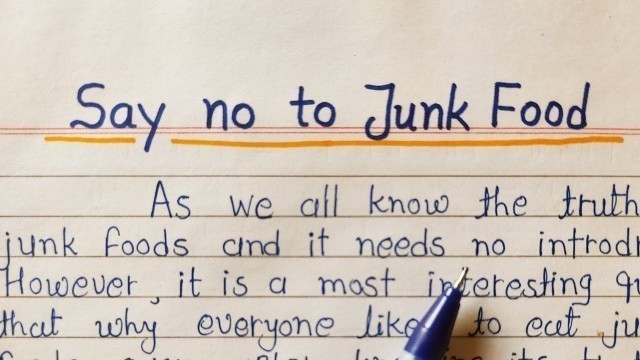 Say no to Junk Food
As we all know the truth
junk foods and it needs no introd
However, it is a most interesting qu
that why everyone like to eat ju